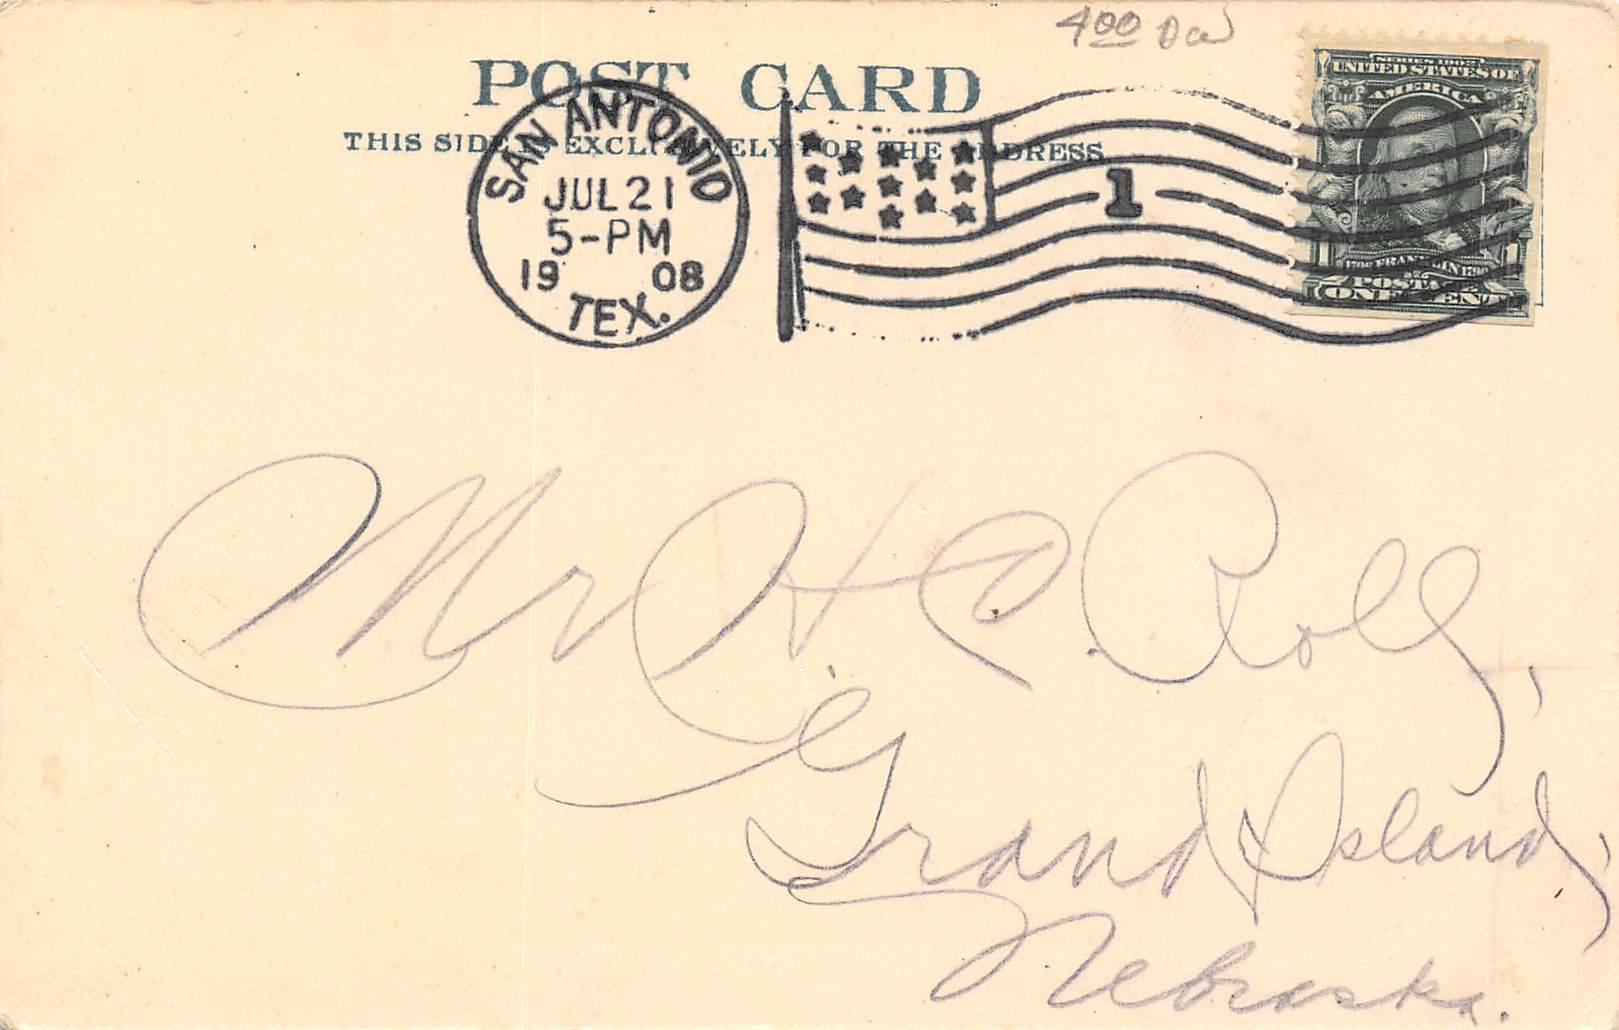 4 00
POST CARD
THIS SIDE EXCLUSIVELY FOR THE ADDRESS
SAN ANTONIO
JUL 21
5-PM
19 08
TEX.
1
SERIES 1902
UNITED STATES OF
AMERICA
1706 FRANKLIN 1790
POSTAGE
ONE CENT
Mr H. C. Roll,
Grand Island,
Nebraska.